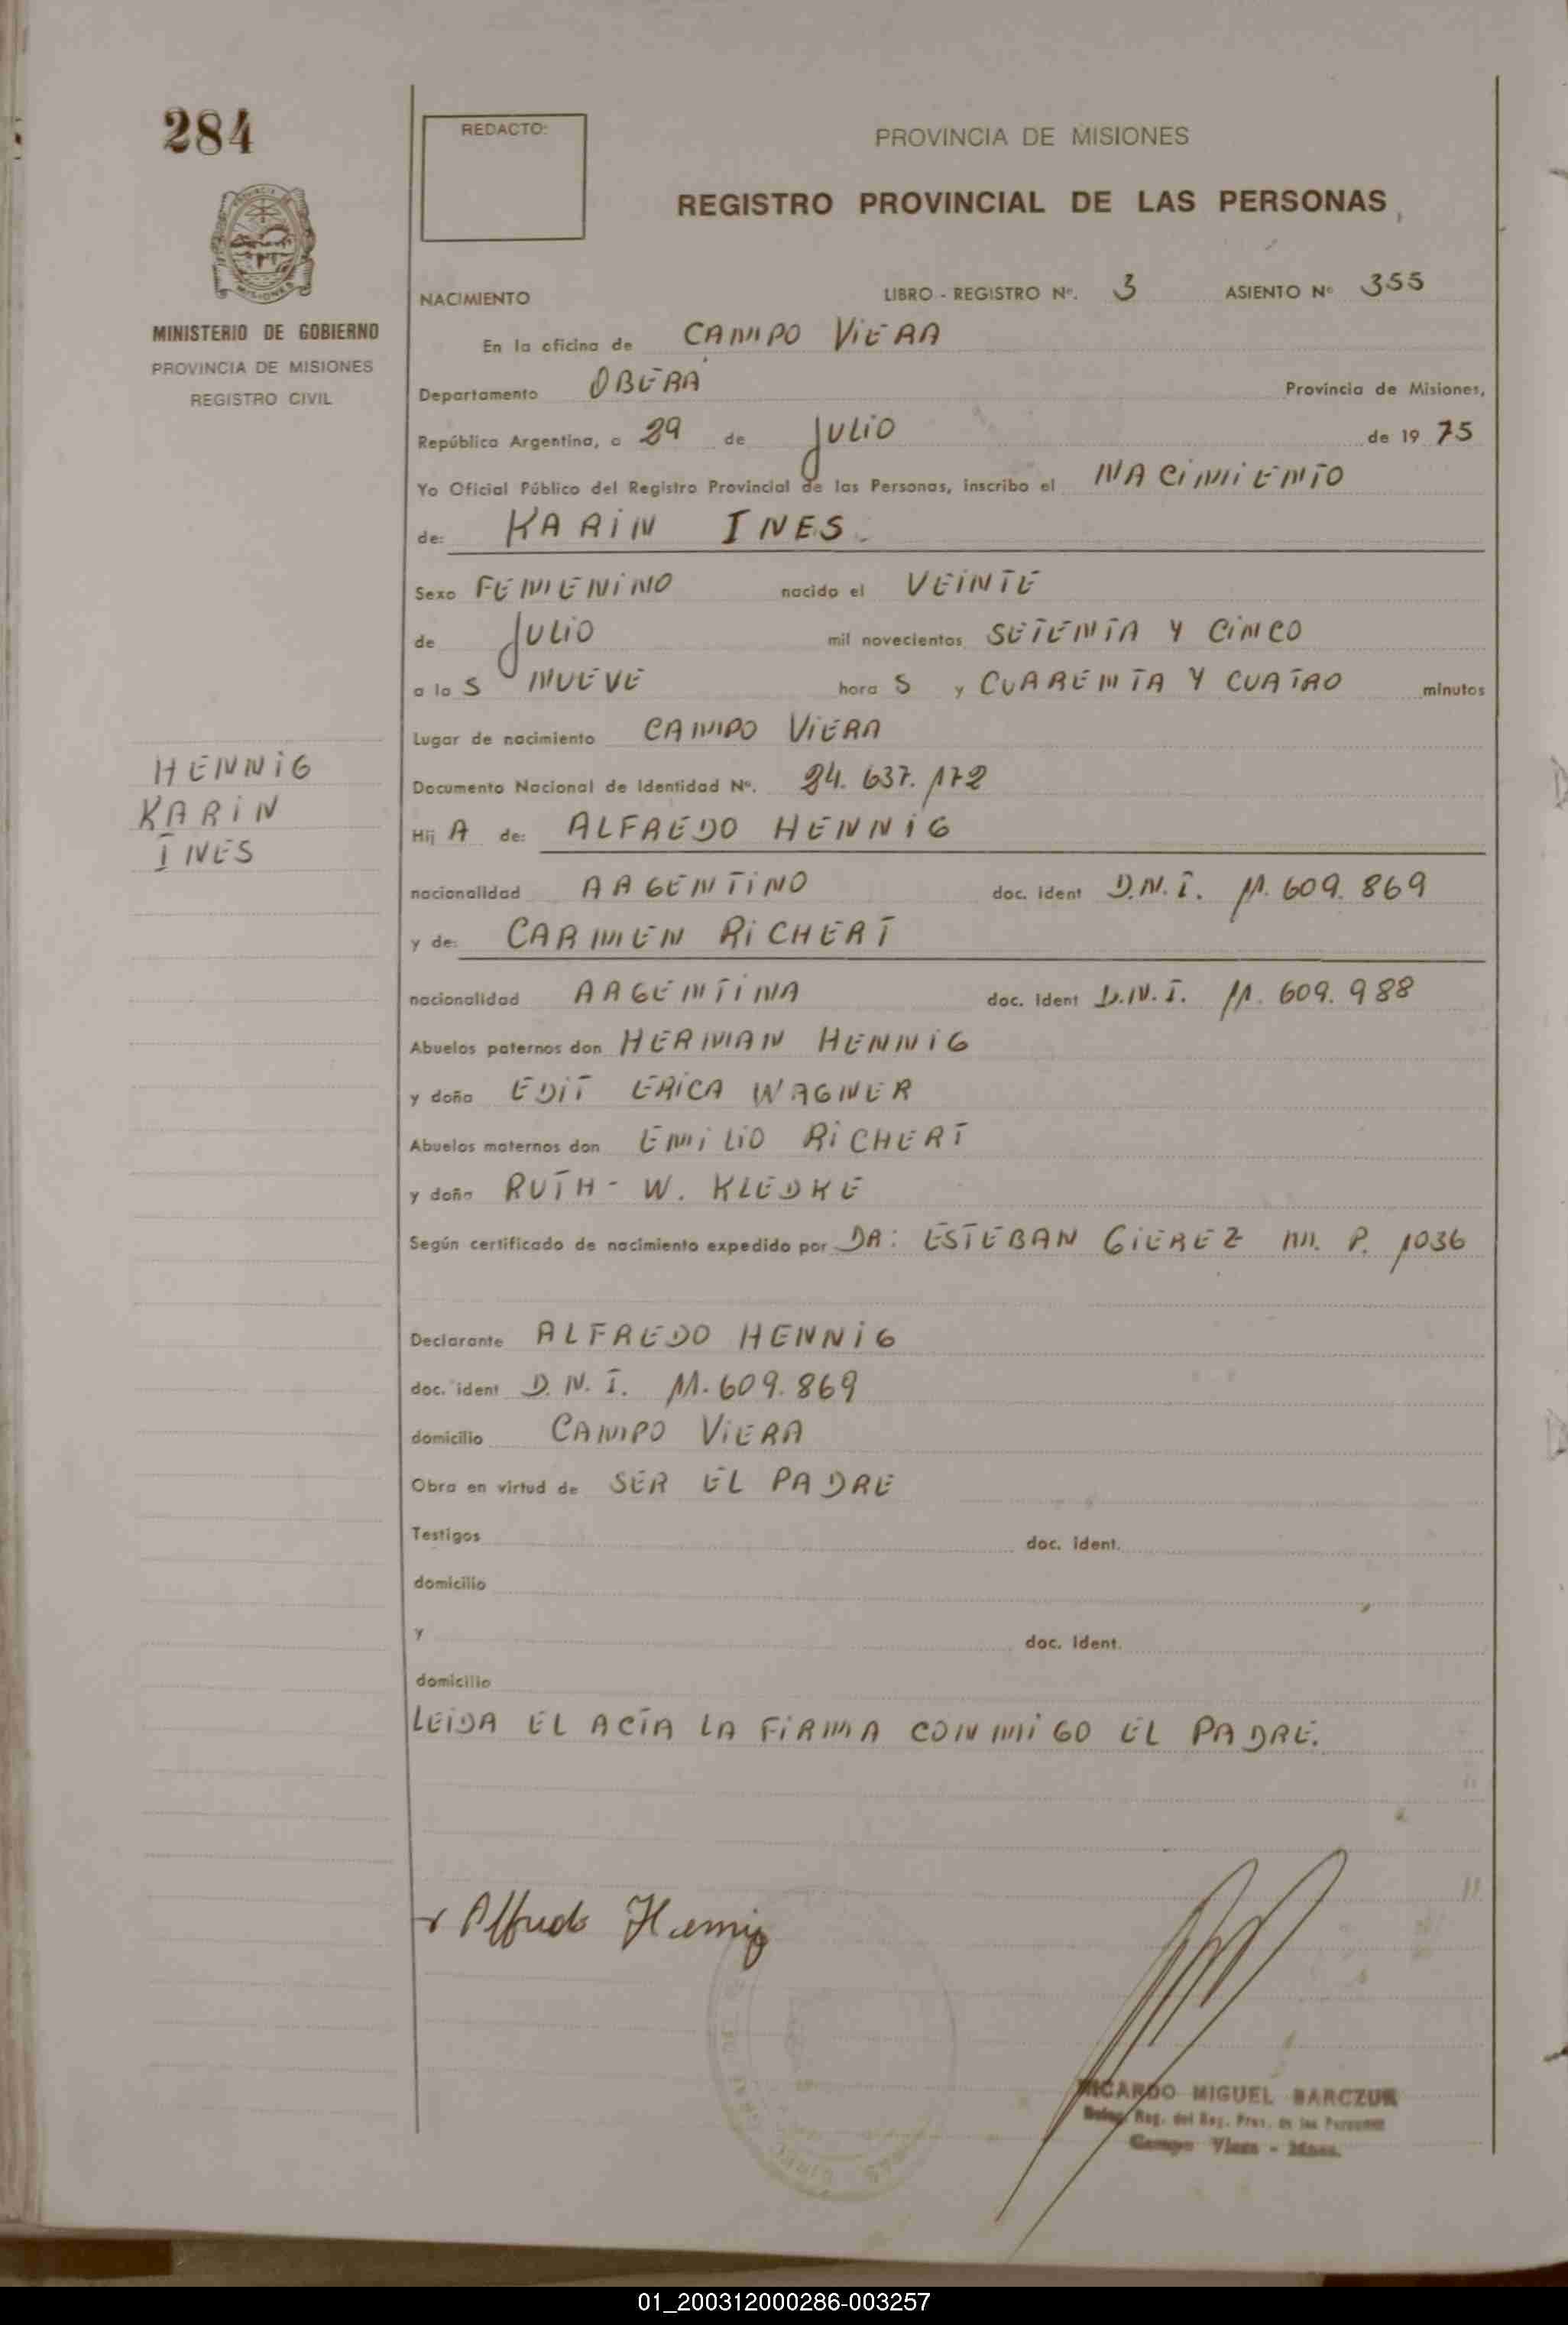 284
REDACTO:
PROVINCIA DE MISIONES
REGISTRO PROVINCIAL DE LAS PERSONAS
MINISTERIO DE GOBIERNO
PROVINCIA DE MISIONES
REGISTRO CIVIL
NACIMIENTO LIBRO - REGISTRO Nº. 3 ASIENTO Nº 355
En la oficina de CAMPO VIERA
Departamento OBERÁ Provincia de Misiones,
República Argentina, a 29 de JULIO de 19 75
Yo Oficial Público del Registro Provincial de las Personas, inscribo el NACIMIENTO
de: KARIN INES.
Sexo FEMENINO nacido el VEINTE
de JULIO mil novecientos SETENTA Y CINCO
a la S NUEVE hora S y CUARENTA Y CUATRO minutos
Lugar de nacimiento CAMPO VIERA
Documento Nacional de Identidad Nº. 24.637.172
HENNIG
KARIN
INES
Hij A de: ALFREDO HENNIG
nacionalidad ARGENTINO doc. ident D.N.I. 11.609.869
y de: CARMEN RICHERT
nacionalidad ARGENTINA doc. ident D.N.I. 11.609.988
Abuelos paternos don HERMAN HENNIG
y doña EDIT ERICA WAGNER
Abuelos maternos don EMILIO RICHERT
y doña RUTH - W. KLEDKE
Según certificado de nacimiento expedido por DR: ESTEBAN GIEREZ M. P. 1036
Declarante ALFREDO HENNIG
doc. ident D.N.I. 11.609.869
domicilio CAMPO VIERA
Obra en virtud de SER EL PADRE
Testigos doc. ident.
domicilio
y doc. ident.
domicilio
LEIDA EL ACTA LA FIRMA CONMIGO EL PADRE.
Alfredo Hennig
RICARDO MIGUEL BARCZUK
Reg. del Reg. Prov. de las Personas
Campo Viera - Mnes.
01_200312000286-003257